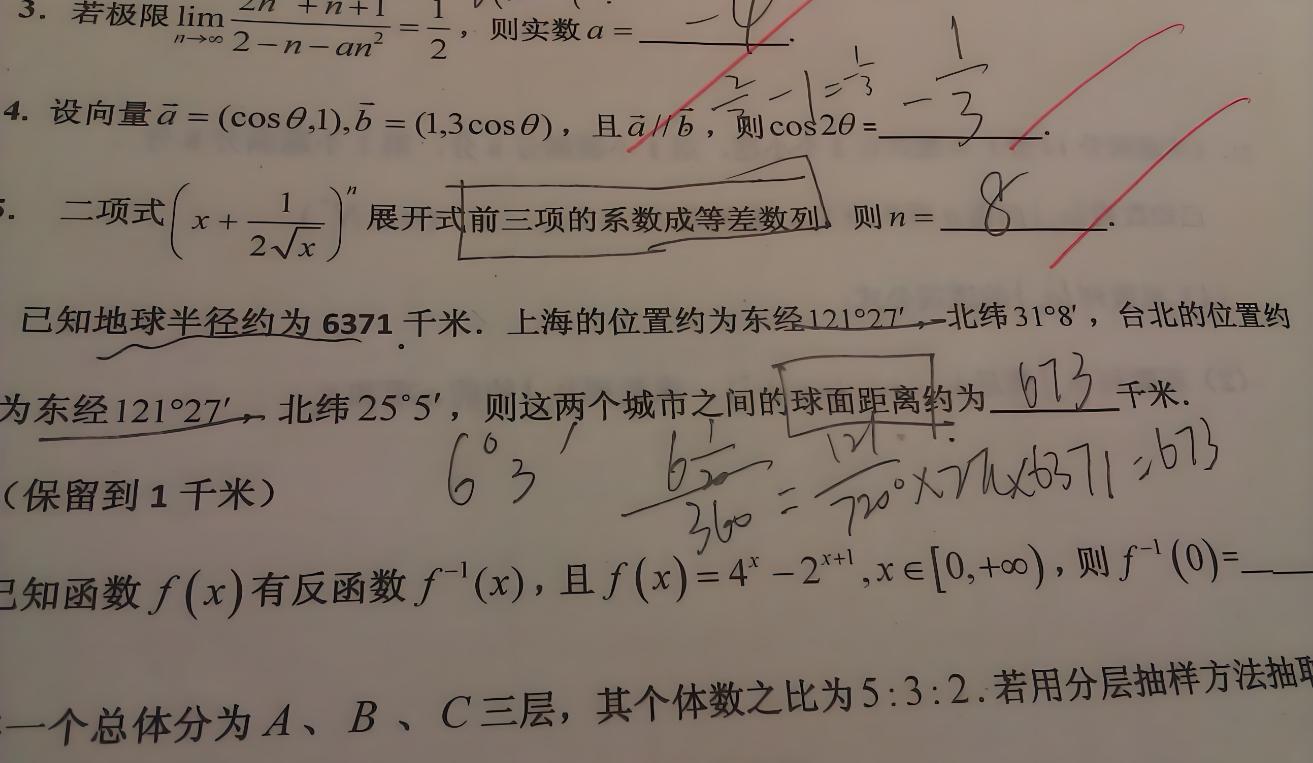 3. 若极限 lim n→∞ (2n² + n + 1)/(2 − n − an²) = 1/2，则实数 a = −4.
2/3 − 1 = −1/3
4. 设向量 a⃗ = (cosθ,1), b⃗ = (1,3cosθ)，且 a⃗ // b⃗，则 cos2θ = −1/3.
二项式 (x + 1/(2√x))ⁿ 展开式前三项的系数成等差数列，则 n = 8.
已知地球半径约为 6371 千米．上海的位置约为东经 121°27′，北纬 31°8′，台北的位置约
为东经 121°27′，北纬 25°5′，则这两个城市之间的球面距离约为 673 千米．
6°3′ (6 1/20)/360 = 121/720° × 2π × 6371 = 673
（保留到 1 千米）
已知函数 f(x) 有反函数 f⁻¹(x)，且 f(x) = 4ˣ − 2ˣ⁺¹, x ∈ [0,+∞)，则 f⁻¹(0)=
一个总体分为 A、B、C 三层，其个体数之比为 5:3:2．若用分层抽样方法抽取